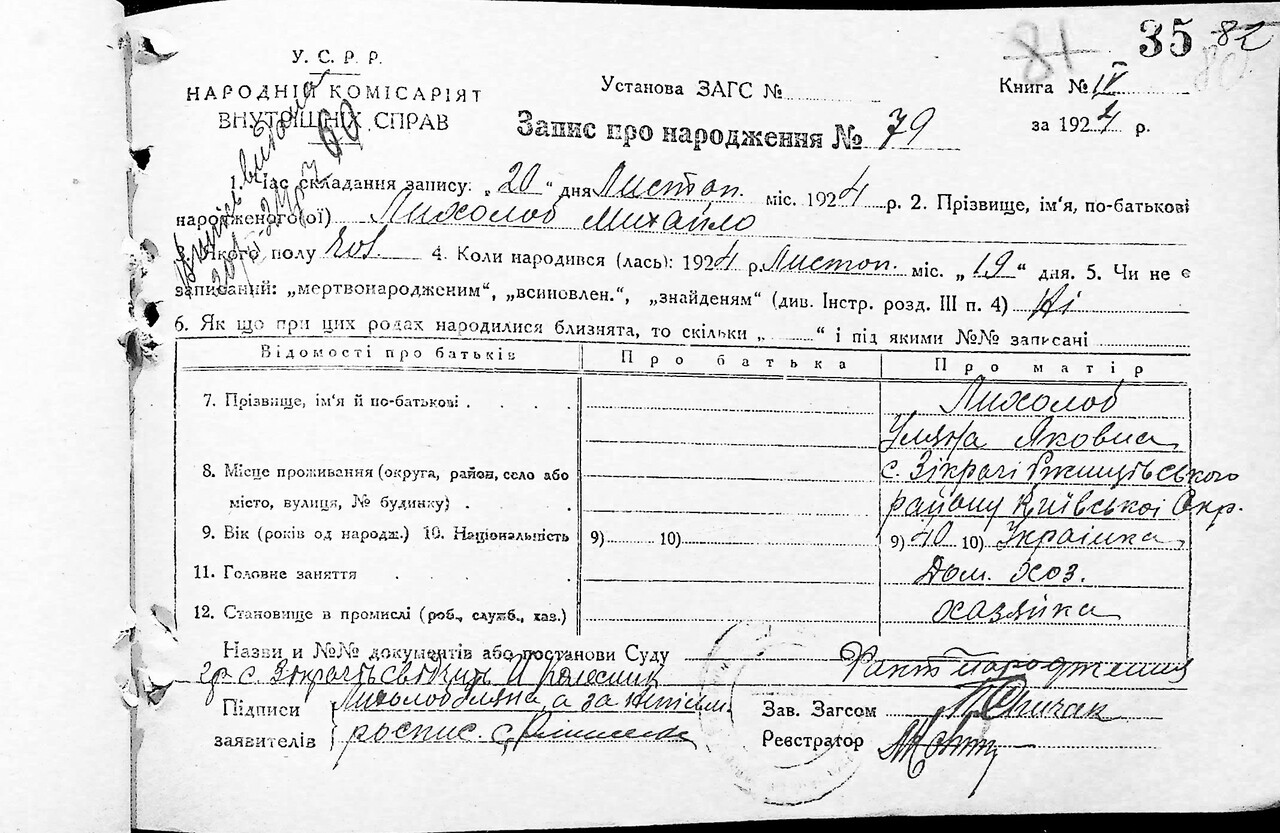 81 35 82
80
У. С. Р. Р.
НАРОДНІЙ КОМІСАРІЯТ
ВНУТРІШНІХ СПРАВ
Установа ЗАГС №
Книга № IV
за 1924 р.
Запис про народження № 79
1. Час складання запису: „ 20 “ дня Листоп. міс. 1924 р. 2. Прізвище, ім'я, по-батькові
народженого(ої) Лихолоб Михайло
Якого полу чол. 4. Коли народився (лась): 1924 р. Листоп. міс. „ 19 “ дня. 5. Чи не є
записаний: „мертвонародженим“, „всиновлен.“, „знайденям“ (див. Інстр. розд. III п. 4) Ні
6. Як що при цих родах народилися близнята, то скільки „ “ і під якими №№ записані
Відомості про батьків Про батька Про матір
7. Прізвище, ім'я й по-батькові Лихолоб
Уляна Яковна
8. Місце проживання (округа, район, село або с. Зікрачі Ржищівського
місто, вулиця, № будинку) району Київської Окр.
9. Вік (років од народж.) 10. Національність 9) 10) 9) 40 10) Українка
11. Головне заняття Дом. хоз.
12. Становище в промислі (роб., служб., хаз.) хазяйка
Назви и №№ документів або постанови Суду Факт народження
гр. с. Зікрачі свідчить
Підписи Лихолоб Уляна, а за
заявителів роспис.
Зав. Загсом
Реєстратор